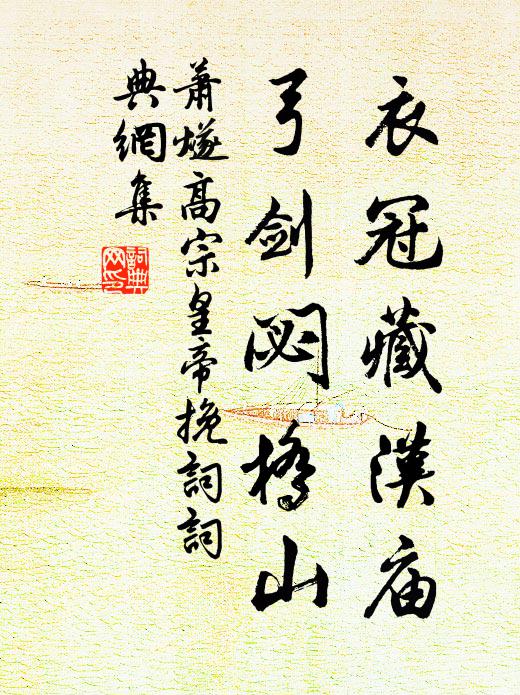 衣冠藏漢庙
弓剑閟橋山
蕭燧高宗皇帝挽詞詞
典網集
詞典网印